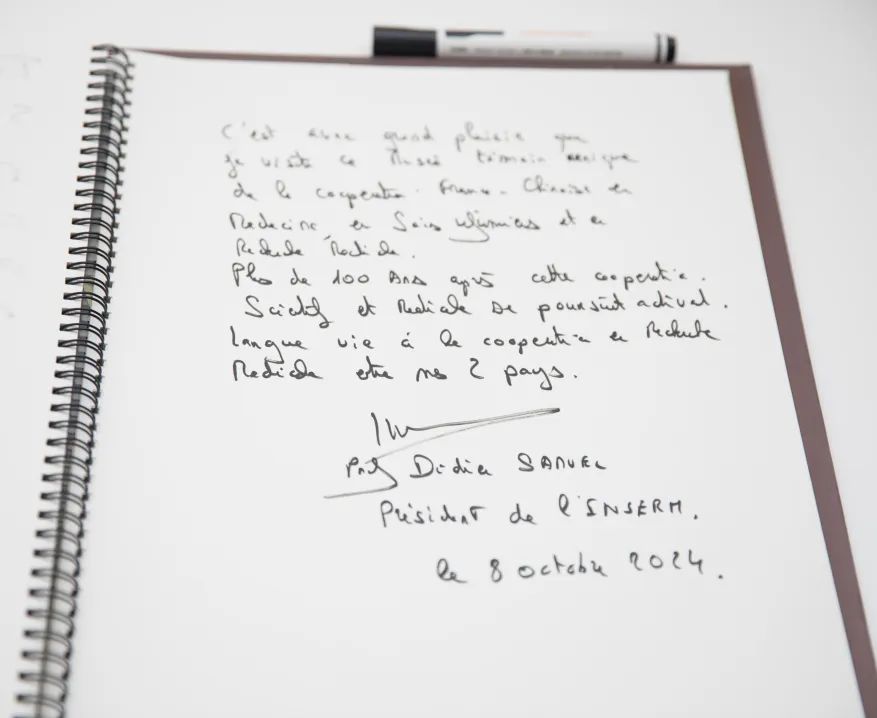 C'est avec grand plaisir que
je visite ce Musée témoin unique
de la coopération Franco-Chinoise en
Médecine en Soins infirmiers et en
Recherche Médicale.
Plus de 100 Ans après cette coopération
Scientifique et Médicale se poursuit activement.
Longue vie à la coopération en Recherche
Médicale entre nos 2 pays.
Prof Didier SAMUEL
Président de l'INSERM.
le 8 octobre 2024.